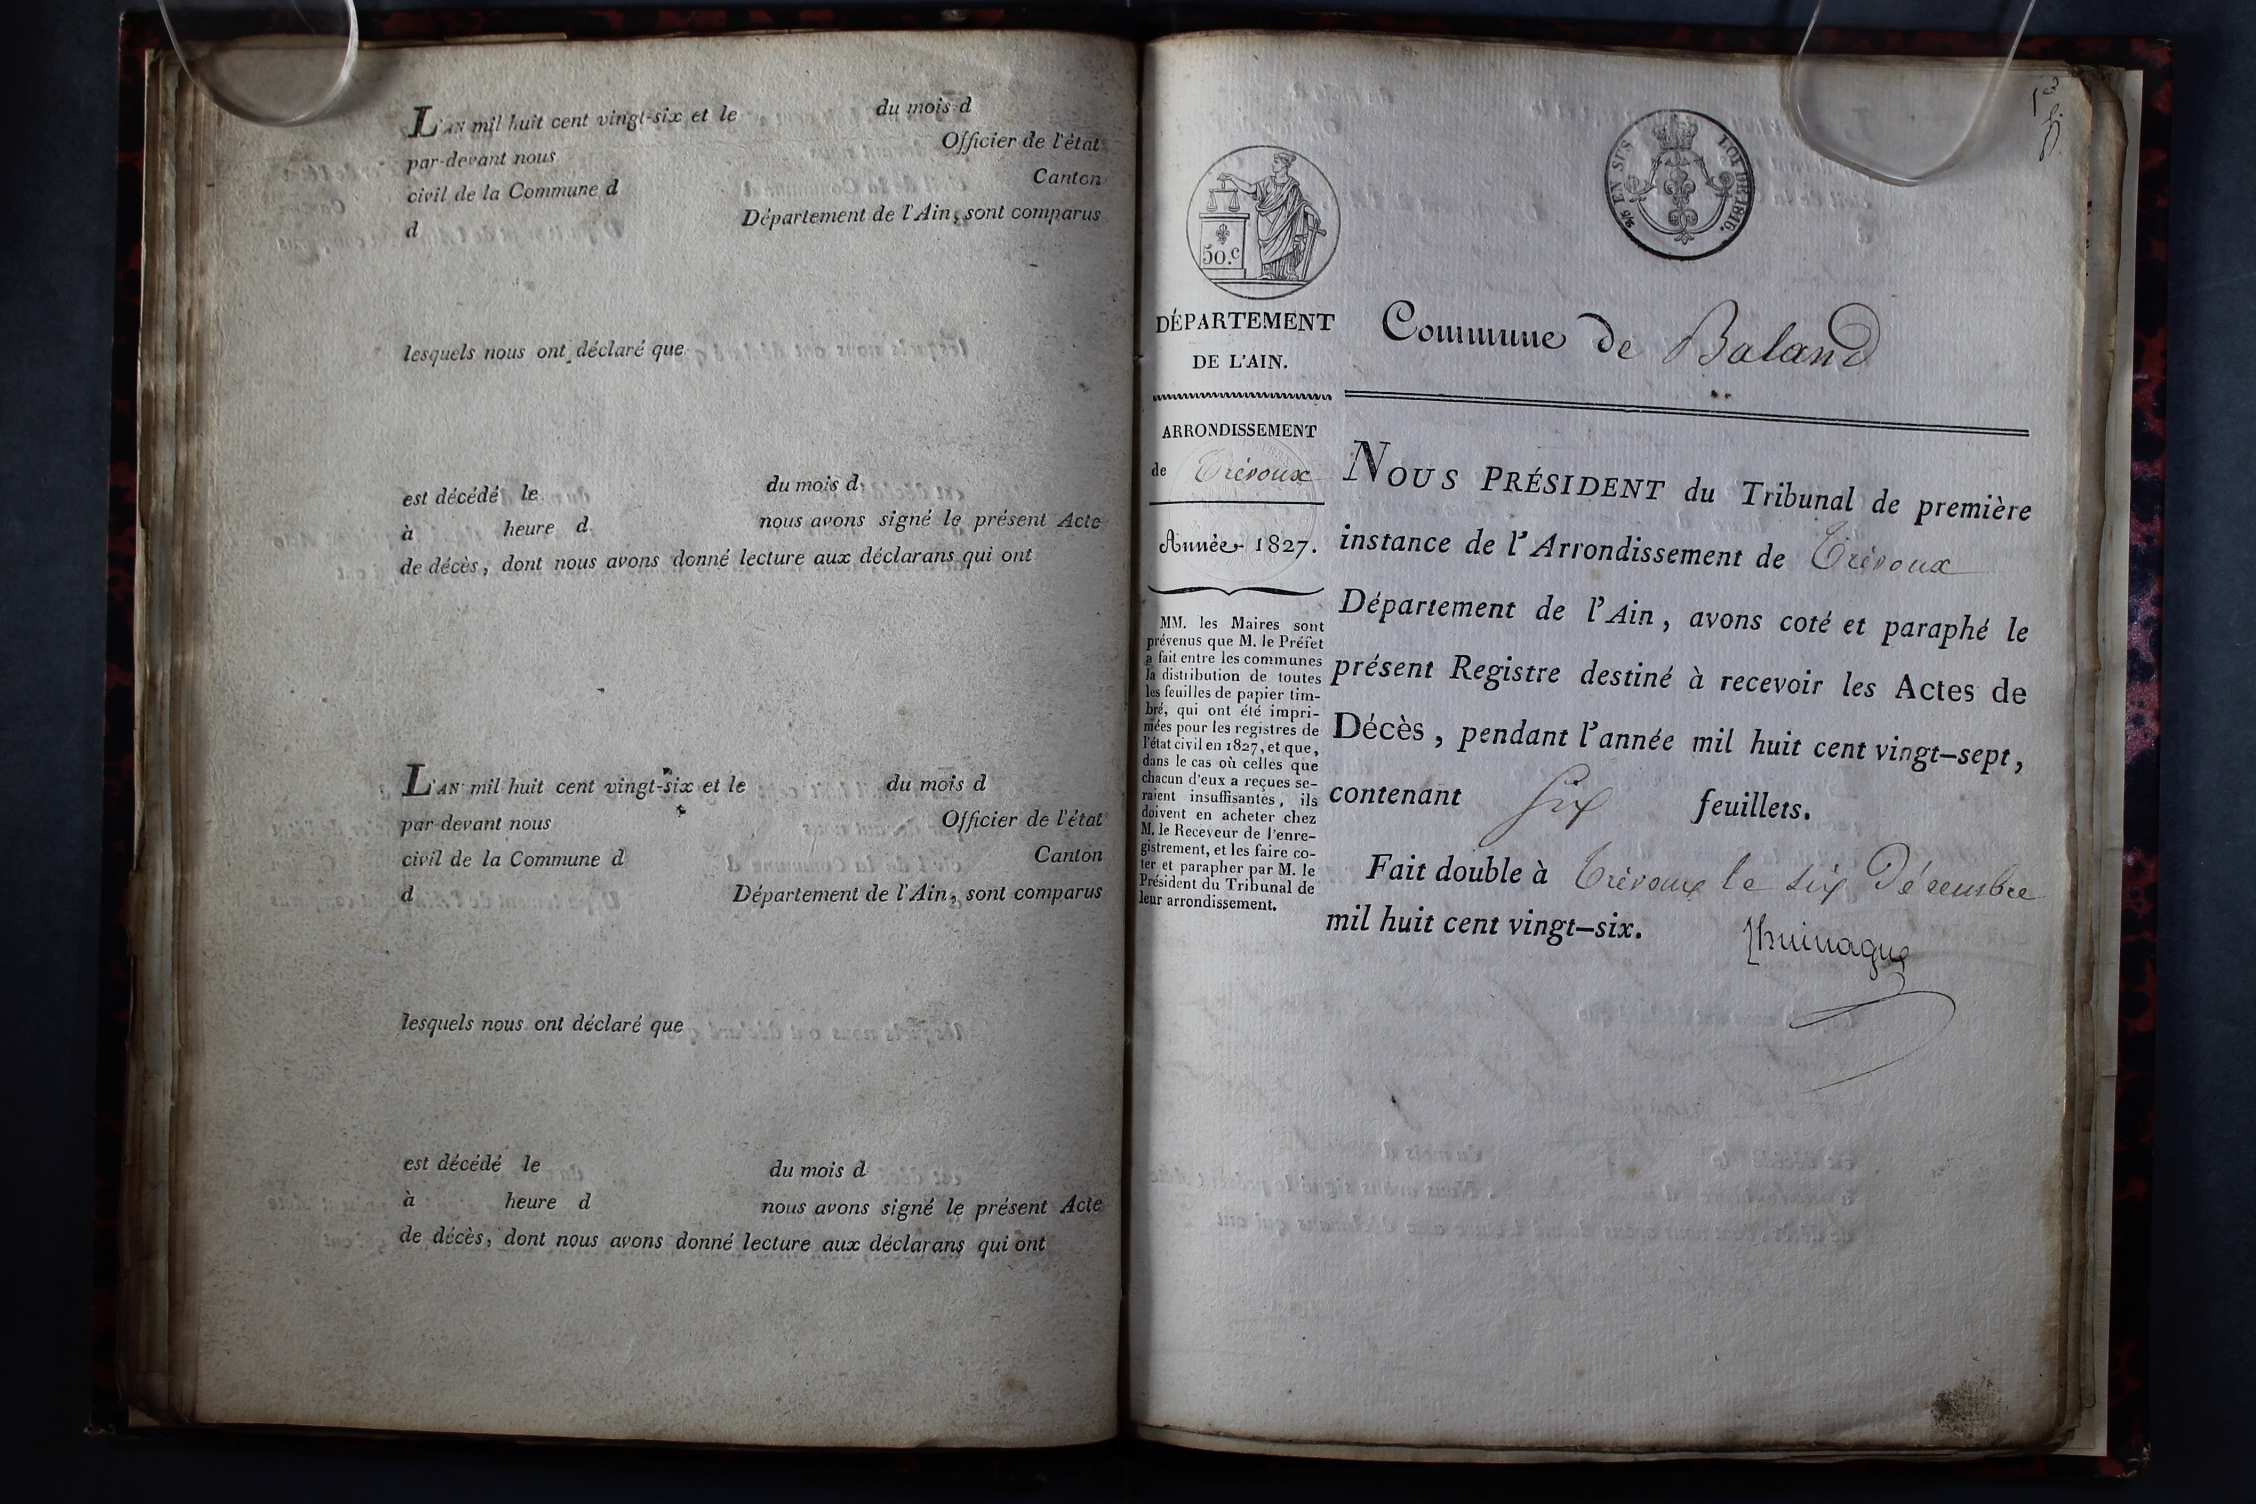 L'AN mil huit cent vingt-six et le du mois d
par-devant nous Officier de l'état
civil de la Commune d Canton
d Département de l'Ain, sont comparus
lesquels nous ont déclaré que
est décédé le du mois d
à heure d nous avons signé le présent Acte
de décès, dont nous avons donné lecture aux déclarans qui ont
L'AN mil huit cent vingt-six et le du mois d
par-devant nous Officier de l'état
civil de la Commune d Canton
d Département de l'Ain, sont comparus
lesquels nous ont déclaré que
est décédé le du mois d
à heure d nous avons signé le présent Acte
de décès, dont nous avons donné lecture aux déclarans qui ont
50.c
EN SUS LOI DE 1816.
DÉPARTEMENT
DE L'AIN.
ARRONDISSEMENT
de Trévoux
Année 1827.
MM. les Maires sont
prévenus que M. le Préfet
a fait entre les communes
la distribution de toutes
les feuilles de papier tim-
bré, qui ont été impri-
mées pour les registres de
l'état civil en 1827, et que,
dans le cas où celles que
chacun d'eux a reçues se-
raient insuffisantes, ils
doivent en acheter chez
M. le Receveur de l'enre-
gistrement, et les faire co-
ter et parapher par M. le
Président du Tribunal de
leur arrondissement.
Commune de Baland
NOUS PRÉSIDENT du Tribunal de première
instance de l'Arrondissement de Trévoux
Département de l'Ain, avons coté et paraphé le
présent Registre destiné à recevoir les Actes de
Décès, pendant l'année mil huit cent vingt-sept,
contenant six feuillets.
Fait double à Trévoux le six Décembre
mil huit cent vingt-six.